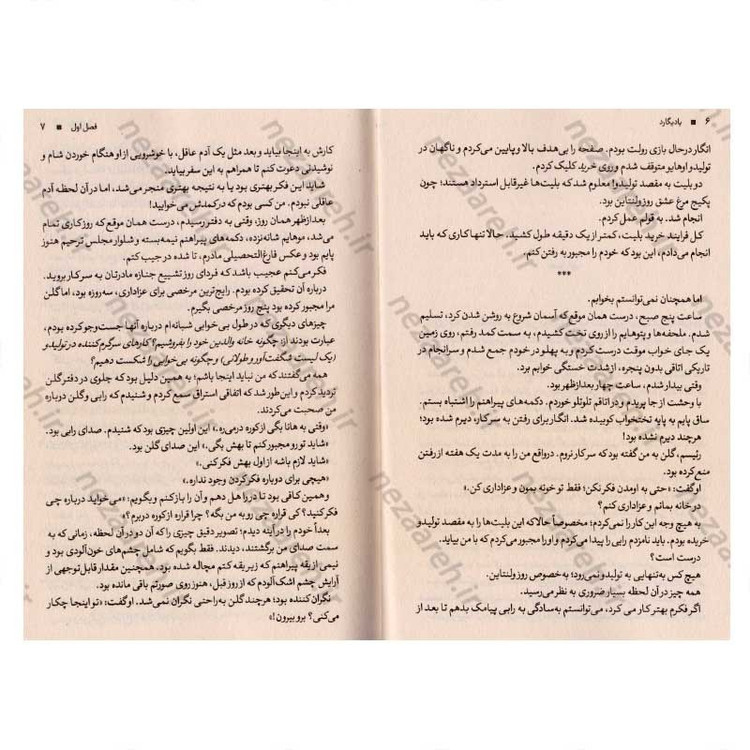 ۶ ■ بادیگارد
انگار درحال بازی رولت بودم. صفحه را بی‌هدف بالا و پایین می‌کردم و ناگهان در
تولیدو اوهایو متوقف شدم و روی خرید کلیک کردم.
دو بلیت به مقصد تولیدو! معلوم شد که بلیت‌ها غیرقابل استرداد هستند؛ چون
پکیج مرغ عشق روز ولنتاین بود.
انجام شد. به قولم عمل کردم.
کل فرایند خرید بلیت، کمتر از یک دقیقه طول کشید. حالا تنها کاری که باید
انجام می‌دادم، این بود که خودم را مجبور به رفتن کنم.
***
اما همچنان نمی‌توانستم بخوابم.
ساعت پنج صبح، درست همان موقع که آسمان شروع به روشن شدن کرد، تسلیم
شدم. ملحفه‌ها و پتوهایم را از روی تخت کشیدم، به سمت کمد رفتم، روی زمین
یک جای خواب موقت درست کردم و به پهلو در خودم جمع شدم و سرانجام در
تاریکی اتاقی بدون پنجره، از شدت خستگی خوابم برد.
وقتی بیدار شدم، ساعت چهار بعدازظهر بود.
با وحشت از جا پریدم و در اتاقم تلوتلو خوردم. دکمه‌های پیراهنم را اشتباه بستم.
ساق پایم به پایه تختخواب کوبیده شد. انگار برای رفتن به سر کار، دیرم شده بود؛
هرچند دیرم نشده بود!
رئیسم، گلن به من گفته بود که سر کار نروم. درواقع من را به مدت یک هفته از رفتن
منع کرده بود.
او گفت: «حتی به اومدن فکر نکن؛ فقط تو خونه بمون و عزاداری کن.»
در خانه بمانم و عزاداری کنم؟
به هیچ وجه این کار را نمی‌کردم؛ مخصوصاً حالا که این بلیت‌ها را به مقصد تولیدو
خریده بودم. باید نامزدم رابی را پیدا می‌کردم و او را مجبور می‌کردم که با من بیاید.
درست است؟
هیچ کس به‌تنهایی به تولیدو نمی‌رود؛ به‌خصوص روز ولنتاین.
همه چیز در آن لحظه بسیار ضروری به نظر می‌رسید.
اگر فکرم بهتر کار می کرد، می‌توانستم به‌سادگی به رابی پیامک بدهم تا بعد از
فصل اول ■ ۷
کارش به اینجا بیاید و بعد مثل یک آدم عاقل، با خوشرویی از او هنگام خوردن شام و
نوشیدنی دعوت کنم تا همراهم به این سفر بیاید.
شاید این فکر بهتری بود یا به نتیجه بهتری منجر می‌شد، اما در آن لحظه آدم
عاقلی نبودم. من کسی بودم که در کمدش می‌خوابید!
بعدازظهر همان روز، وقتی به دفتر رسیدم، درست همان موقع که روز کاری تمام
می‌شد، موهایم شانه‌نزده، دکمه‌های پیراهنم نیمه‌بسته و شلوار مجلس ترحیم هنوز
پایم بود و عکس فارغ‌التحصیلی مادرم، تا شده در جیب کتم.
فکر می‌کنم عجیب باشد که فردای روز تشییع جنازه مادرتان به سر کار بروید.
درباره آن تحقیق کرده بودم. رایج‌ترین مرخصی برای عزاداری، سه‌روزه بود، اما گلن
مرا مجبور کرده بود پنج روز مرخصی بگیرم.
چیزهای دیگری که در طول بی‌خوابی شبانه‌ام درباره آنها جست‌وجو کرده بودم،
عبارت بودند از: چگونه خانه والدین خود را بفروشیم؟ کارهای سرگرم‌کننده در تولیدو و
(یک لیست شگفت‌آور و طولانی) و چگونه بی‌خوابی را شکست دهیم؟
همه می‌گفتند که من نباید اینجا باشم؛ به همین دلیل بود که جلوی در دفتر گلن
تردید کردم و این‌طور شد که اتفاقی استراق سمع کردم و شنیدم که رابی و گلن درباره
من صحبت می‌کردند.
«وقتی به هانا بگی از کوره در می‌ره.» این اولین چیزی بود که شنیدم. صدای رابی بود.
«شاید تو رو مجبور کنم تا بهش بگی.» این صدای گلن بود.
«شاید لازم باشه از اول بهش فکر کنی.»
«هیچی برای دوباره فکر کردن وجود نداره.»
و همین کافی بود تا در را هل دهم و آن را باز کنم و بگویم: «می‌خواید درباره چی
فکر کنید؟ کی قراره چی رو به من بگه؟ چرا قراره از کوره در برم؟»
بعداً خودم را در آینه دیدم؛ تصویر دقیق چیزی را که آن دو در آن لحظه، زمانی که به
سمت صدای من برگشتند، دیدند. فقط بگویم که شامل چشم‌های خون‌آلودی بود و
نیمی از یقه پیراهنم که زیر یقه کتم مچاله شده بود. همچنین مقدار قابل‌توجهی از
آرایش چشم اشک‌آلودم که از روز قبل، هنوز روی صورتم باقی مانده بود.
نگران‌کننده بود؛ هرچند گلن به‌راحتی نگران نمی‌شد. او گفت: «تو اینجا چکار
می‌کنی؟ برو بیرون!»
nezaareh.ir